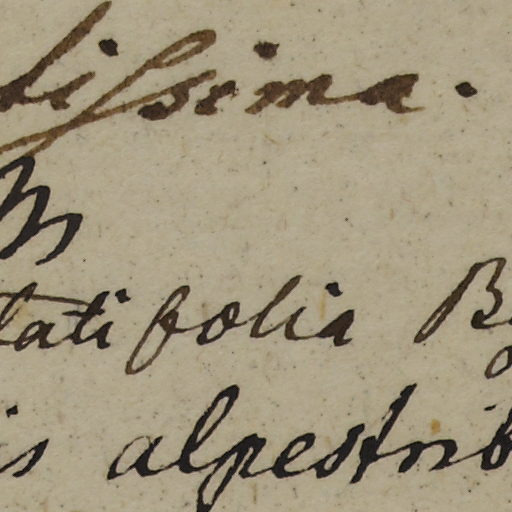 tissima.
latifolia B
is alpestrib